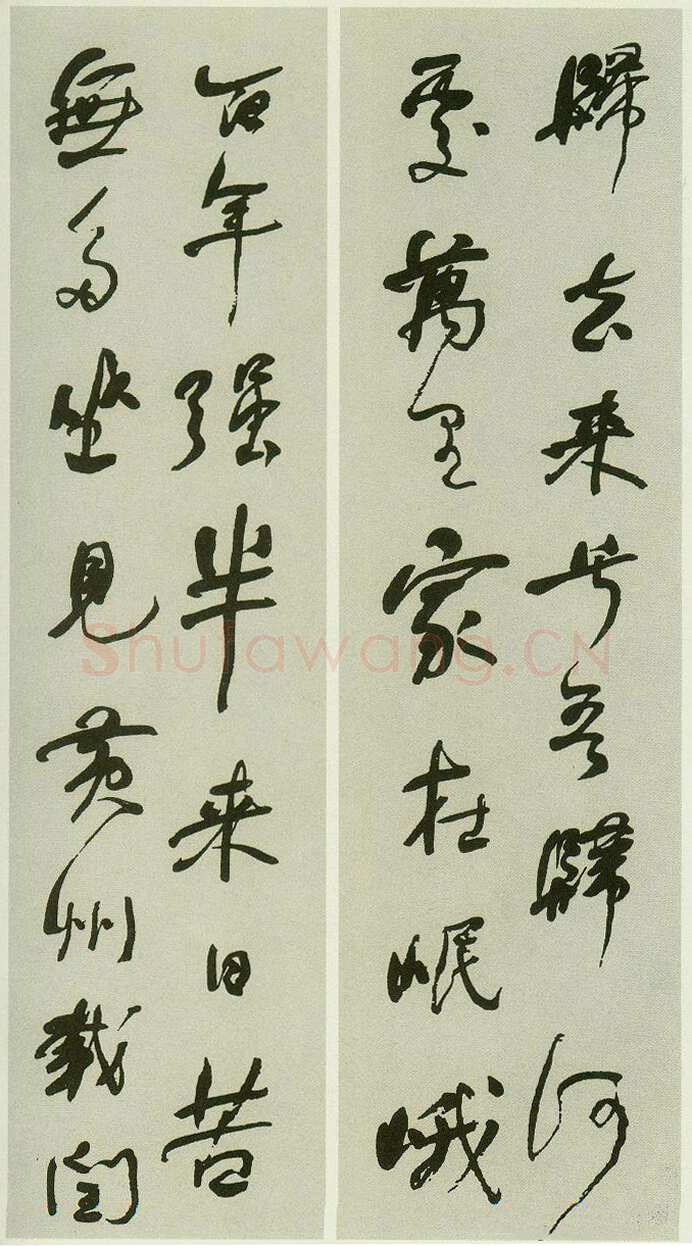 歸去来兮吾歸何
處萬里家在岷峨
百年强半来日苦
無多坐見黄州載閏
Shufawang.CN